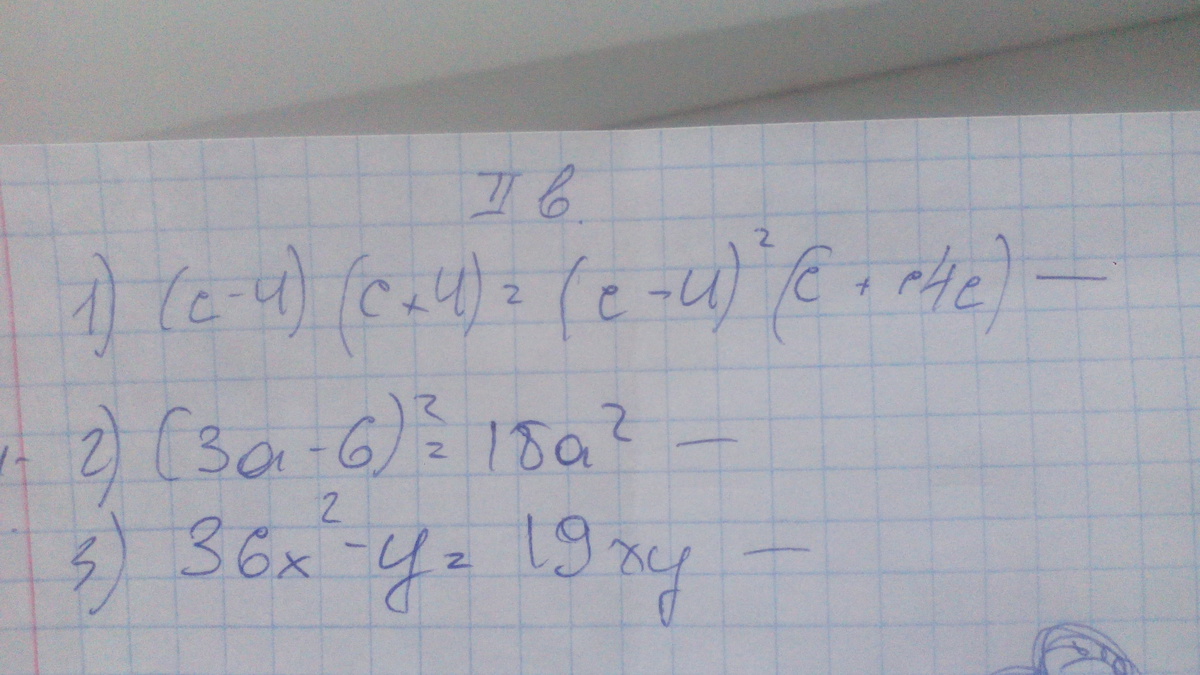 II в.
1) (c-4)(c+4)= (c-4)²(c + c4c) —
2) (3a-6)²= 18a² —
3) 36x²-y= 19xy —